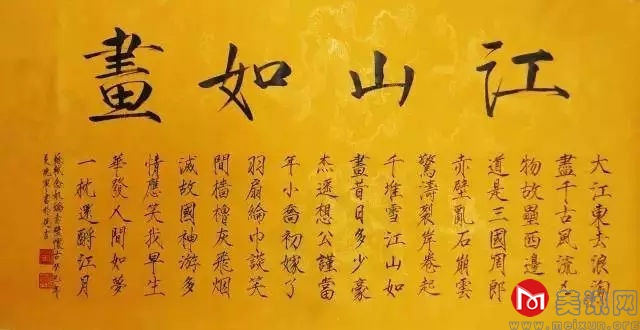 江山如畫
大江東去浪淘
盡千古風流人
物故壘西邊
道是三國周郎
赤壁亂石崩雲
驚濤裂岸卷起
千堆雪江山如
畫昔日多少豪
杰遙想公謹當
年小喬初嫁了
羽扇綸巾談笑
間檣櫓灰飛烟
滅故國神游多
情應笑我早生
華發人間如夢
一枕還酹江月
蘇軾念奴嬌赤壁懷古
美讯网
www.meixun.org